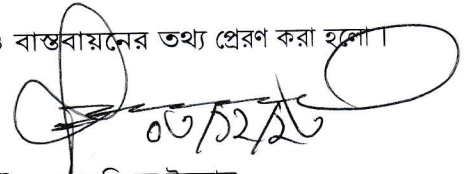 বাস্তবায়নের তথ্য প্রেরণ করা হলো।
০৩/১২/২৩